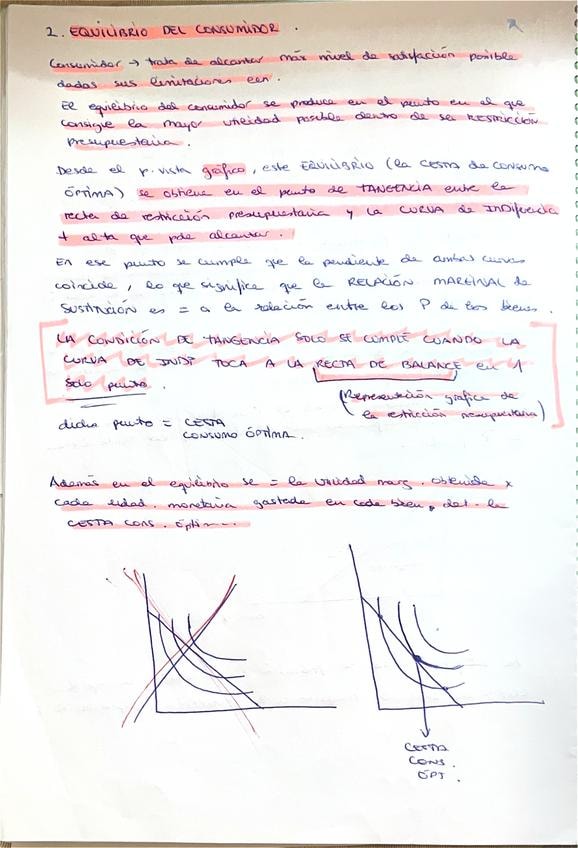 2. EQUILIBRIO DEL CONSUMIDOR.
Consumidor → trata de alcanzar más nivel de satisfacción posible
dadas sus limitaciones ecn.
El equilibrio del consumidor se produce en el punto en el que
consigue la mayor utilidad posible dentro de su RESTRICCIÓN
presupuestaria.
Desde el p. vista gráfico, este EQUILIBRIO (la CESTA de CONSUMO
ÓPTIMA) se obtiene en el punto de TANGENCIA entre la
recta de restricción presupuestaria y la CURVA de INDiferencia
+ alta que pde alcanzar.
En ese punto se cumple que la pendiente de ambas curvas
coincide, lo que significa que la RELACIÓN MARGINAL de
SUSTITUCIÓN es = a la relación entre los P de los bienes.
LA CONDICIÓN DE TANGENCIA SOLO SE CUMPLE CUANDO LA
CURVA DE INDIF TOCA A LA RECTA DE BALANCE en 1
solo punto.
(Representación gráfica de
la restricción presupuestaria)
dicho punto = CESTA
CONSUMO ÓPTIMA.
Además en el equilibrio se = la utilidad marg. obtenida x
cada udad. monetaria gastada en cada bien, det. la
CESTA CONS. óptim
CESTA
CONS.
ÓPT.